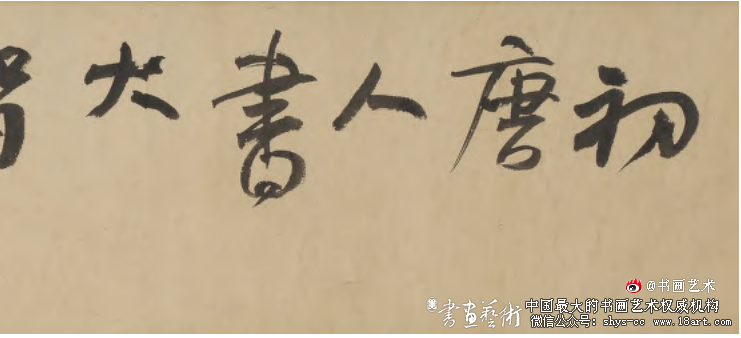 初唐人書大
@书画艺术
書畫藝術
中国最大的书画艺术权威机构
微信公众号：shys-cc www.18art.com